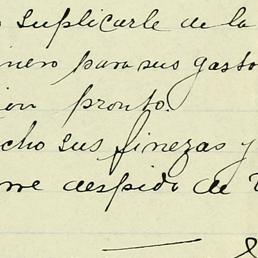 suplicarle de la
nero para sus gasto
ion pronto.
cho sus finezas y
me despido de